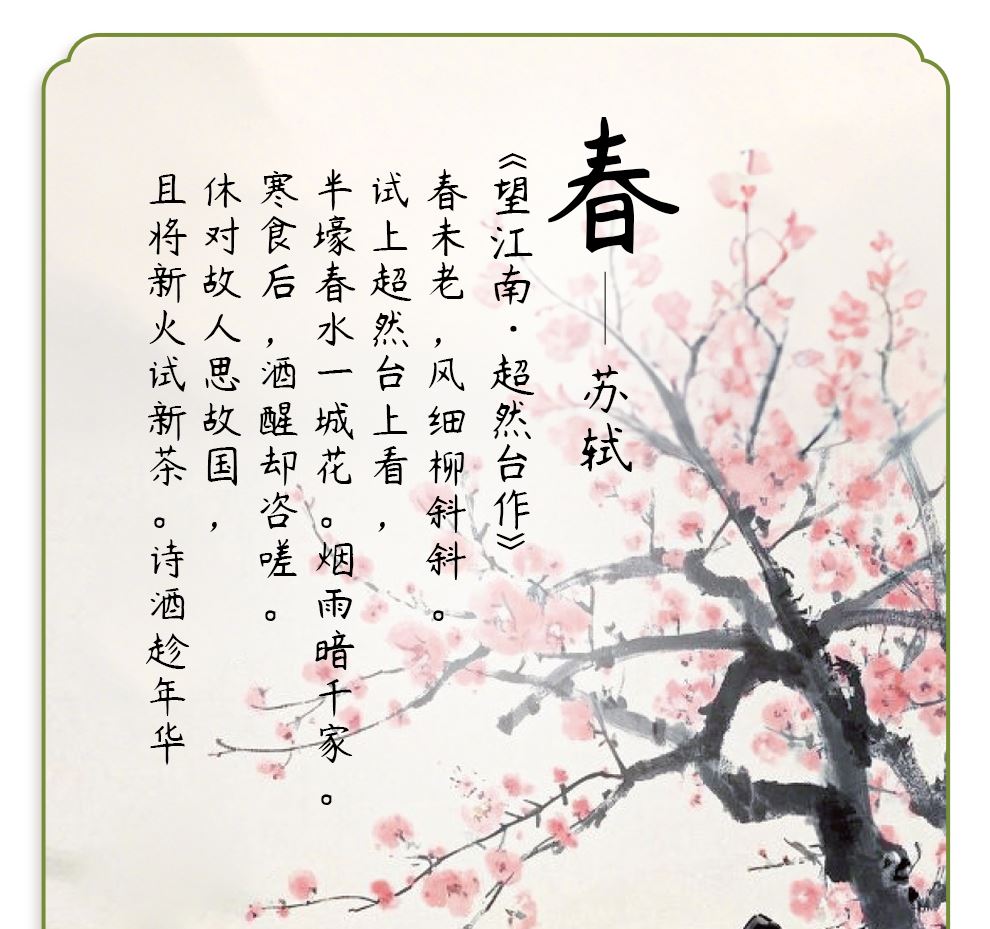 春——苏轼
《望江南·超然台作》
春未老，风细柳斜斜。
试上超然台上看，
半壕春水一城花。烟雨暗千家。
寒食后，酒醒却咨嗟。
休对故人思故国，
且将新火试新茶。诗酒趁年华